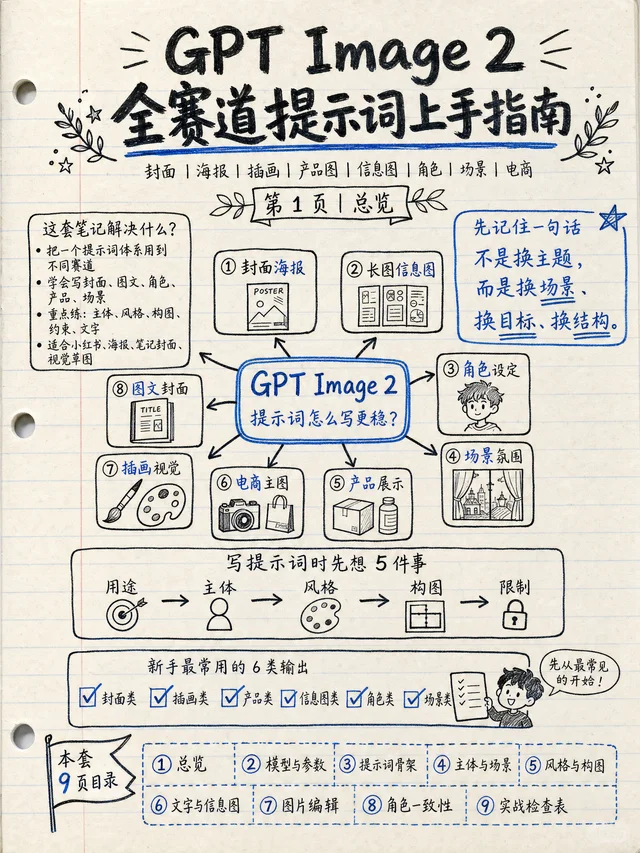 GPT Image 2
全赛道提示词上手指南
封面 | 海报 | 插画 | 产品图 | 信息图 | 角色 | 场景 | 电商
第 1 页 | 总览
这套笔记解决什么?
• 把一个提示词体系用到
不同赛道
• 学会写封面、图文、角色、
产品、场景
• 重点练：主体、风格、构图、
约束、文字
• 适合小红书、海报、笔记封面、
视觉草图
先记住一句话
不是换主题，
而是换场景、
换目标、换结构。
① 封面海报
POSTER
② 长图信息图
③ 角色设定
④ 场景氛围
⑤ 产品展示
⑥ 电商主图
⑦ 插画视觉
⑧ 图文封面
TITLE
GPT Image 2
提示词怎么写更稳?
写提示词时先想 5 件事
用途 → 主体 → 风格 → 构图 → 限制
新手最常用的 6 类输出
封面类 插画类 产品类 信息图类 角色类 场景类
先从最常见
的开始！
本套
9页目录
① 总览 ② 模型与参数 ③ 提示词骨架 ④ 主体与场景 ⑤ 风格与构图
⑥ 文字与信息图 ⑦ 图片编辑 ⑧ 角色一致性 ⑨ 实战检查表